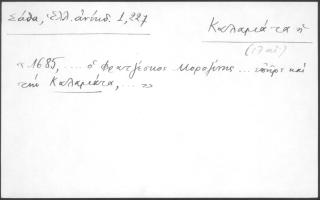 Σάθα, Ἑλλ. ἀνέκδ. 1,227
Καλαμάτα ἡ
« 1685, .... ὁ Φραντζέσκος Μοροζίνης ... ἐπῆρε καὶ
τὴν Καλαμάτα, ... »